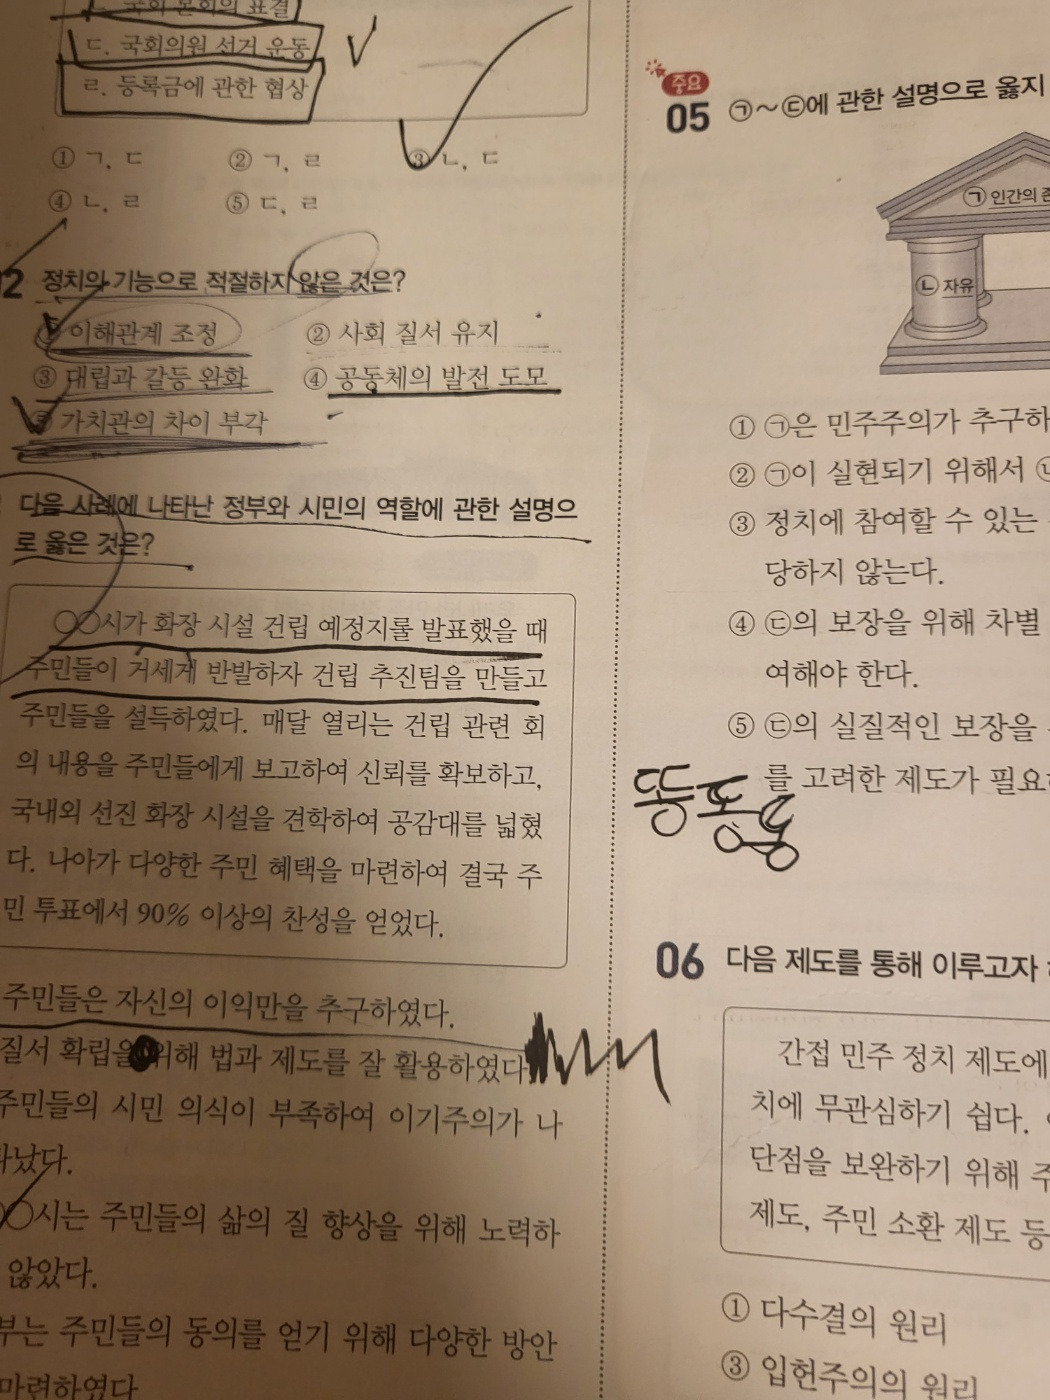 국회 본회의 표결
ㄷ. 국회의원 선거 운동
ㄹ. 등록금에 관한 협상
① ㄱ, ㄷ ② ㄱ, ㄹ ③ ㄴ, ㄷ
④ ㄴ, ㄹ ⑤ ㄷ, ㄹ
2 정치의 기능으로 적절하지 않은 것은?
① 이해관계 조정 ② 사회 질서 유지
③ 대립과 갈등 완화 ④ 공동체의 발전 도모
⑤ 가치관의 차이 부각
다음 사례에 나타난 정부와 시민의 역할에 관한 설명으
로 옳은 것은?
○○시가 화장 시설 건립 예정지를 발표했을 때
주민들이 거세게 반발하자 건립 추진팀을 만들고
주민들을 설득하였다. 매달 열리는 건립 관련 회
의 내용을 주민들에게 보고하여 신뢰를 확보하고,
국내외 선진 화장 시설을 견학하여 공감대를 넓혔
다. 나아가 다양한 주민 혜택을 마련하여 결국 주
민 투표에서 90% 이상의 찬성을 얻었다.
주민들은 자신의 이익만을 추구하였다.
질서 확립을 위해 법과 제도를 잘 활용하였다
주민들의 시민 의식이 부족하여 이기주의가 나
타났다.
○○시는 주민들의 삶의 질 향상을 위해 노력하
않았다.
부는 주민들의 동의를 얻기 위해 다양한 방안
마련하였다
중요
05 ㉠～㉢에 관한 설명으로 옳지
㉠ 인간의 존
㉡ 자유
① ㉠은 민주주의가 추구하
② ㉠이 실현되기 위해서 ㉡
③ 정치에 참여할 수 있는
당하지 않는다.
④ ㉢의 보장을 위해 차별
여해야 한다.
⑤ ㉢의 실질적인 보장을
를 고려한 제도가 필요
06 다음 제도를 통해 이루고자
간접 민주 정치 제도에
치에 무관심하기 쉽다.
단점을 보완하기 위해 주
제도, 주민 소환 제도 등
① 다수결의 원리
③ 입헌주의의 원리